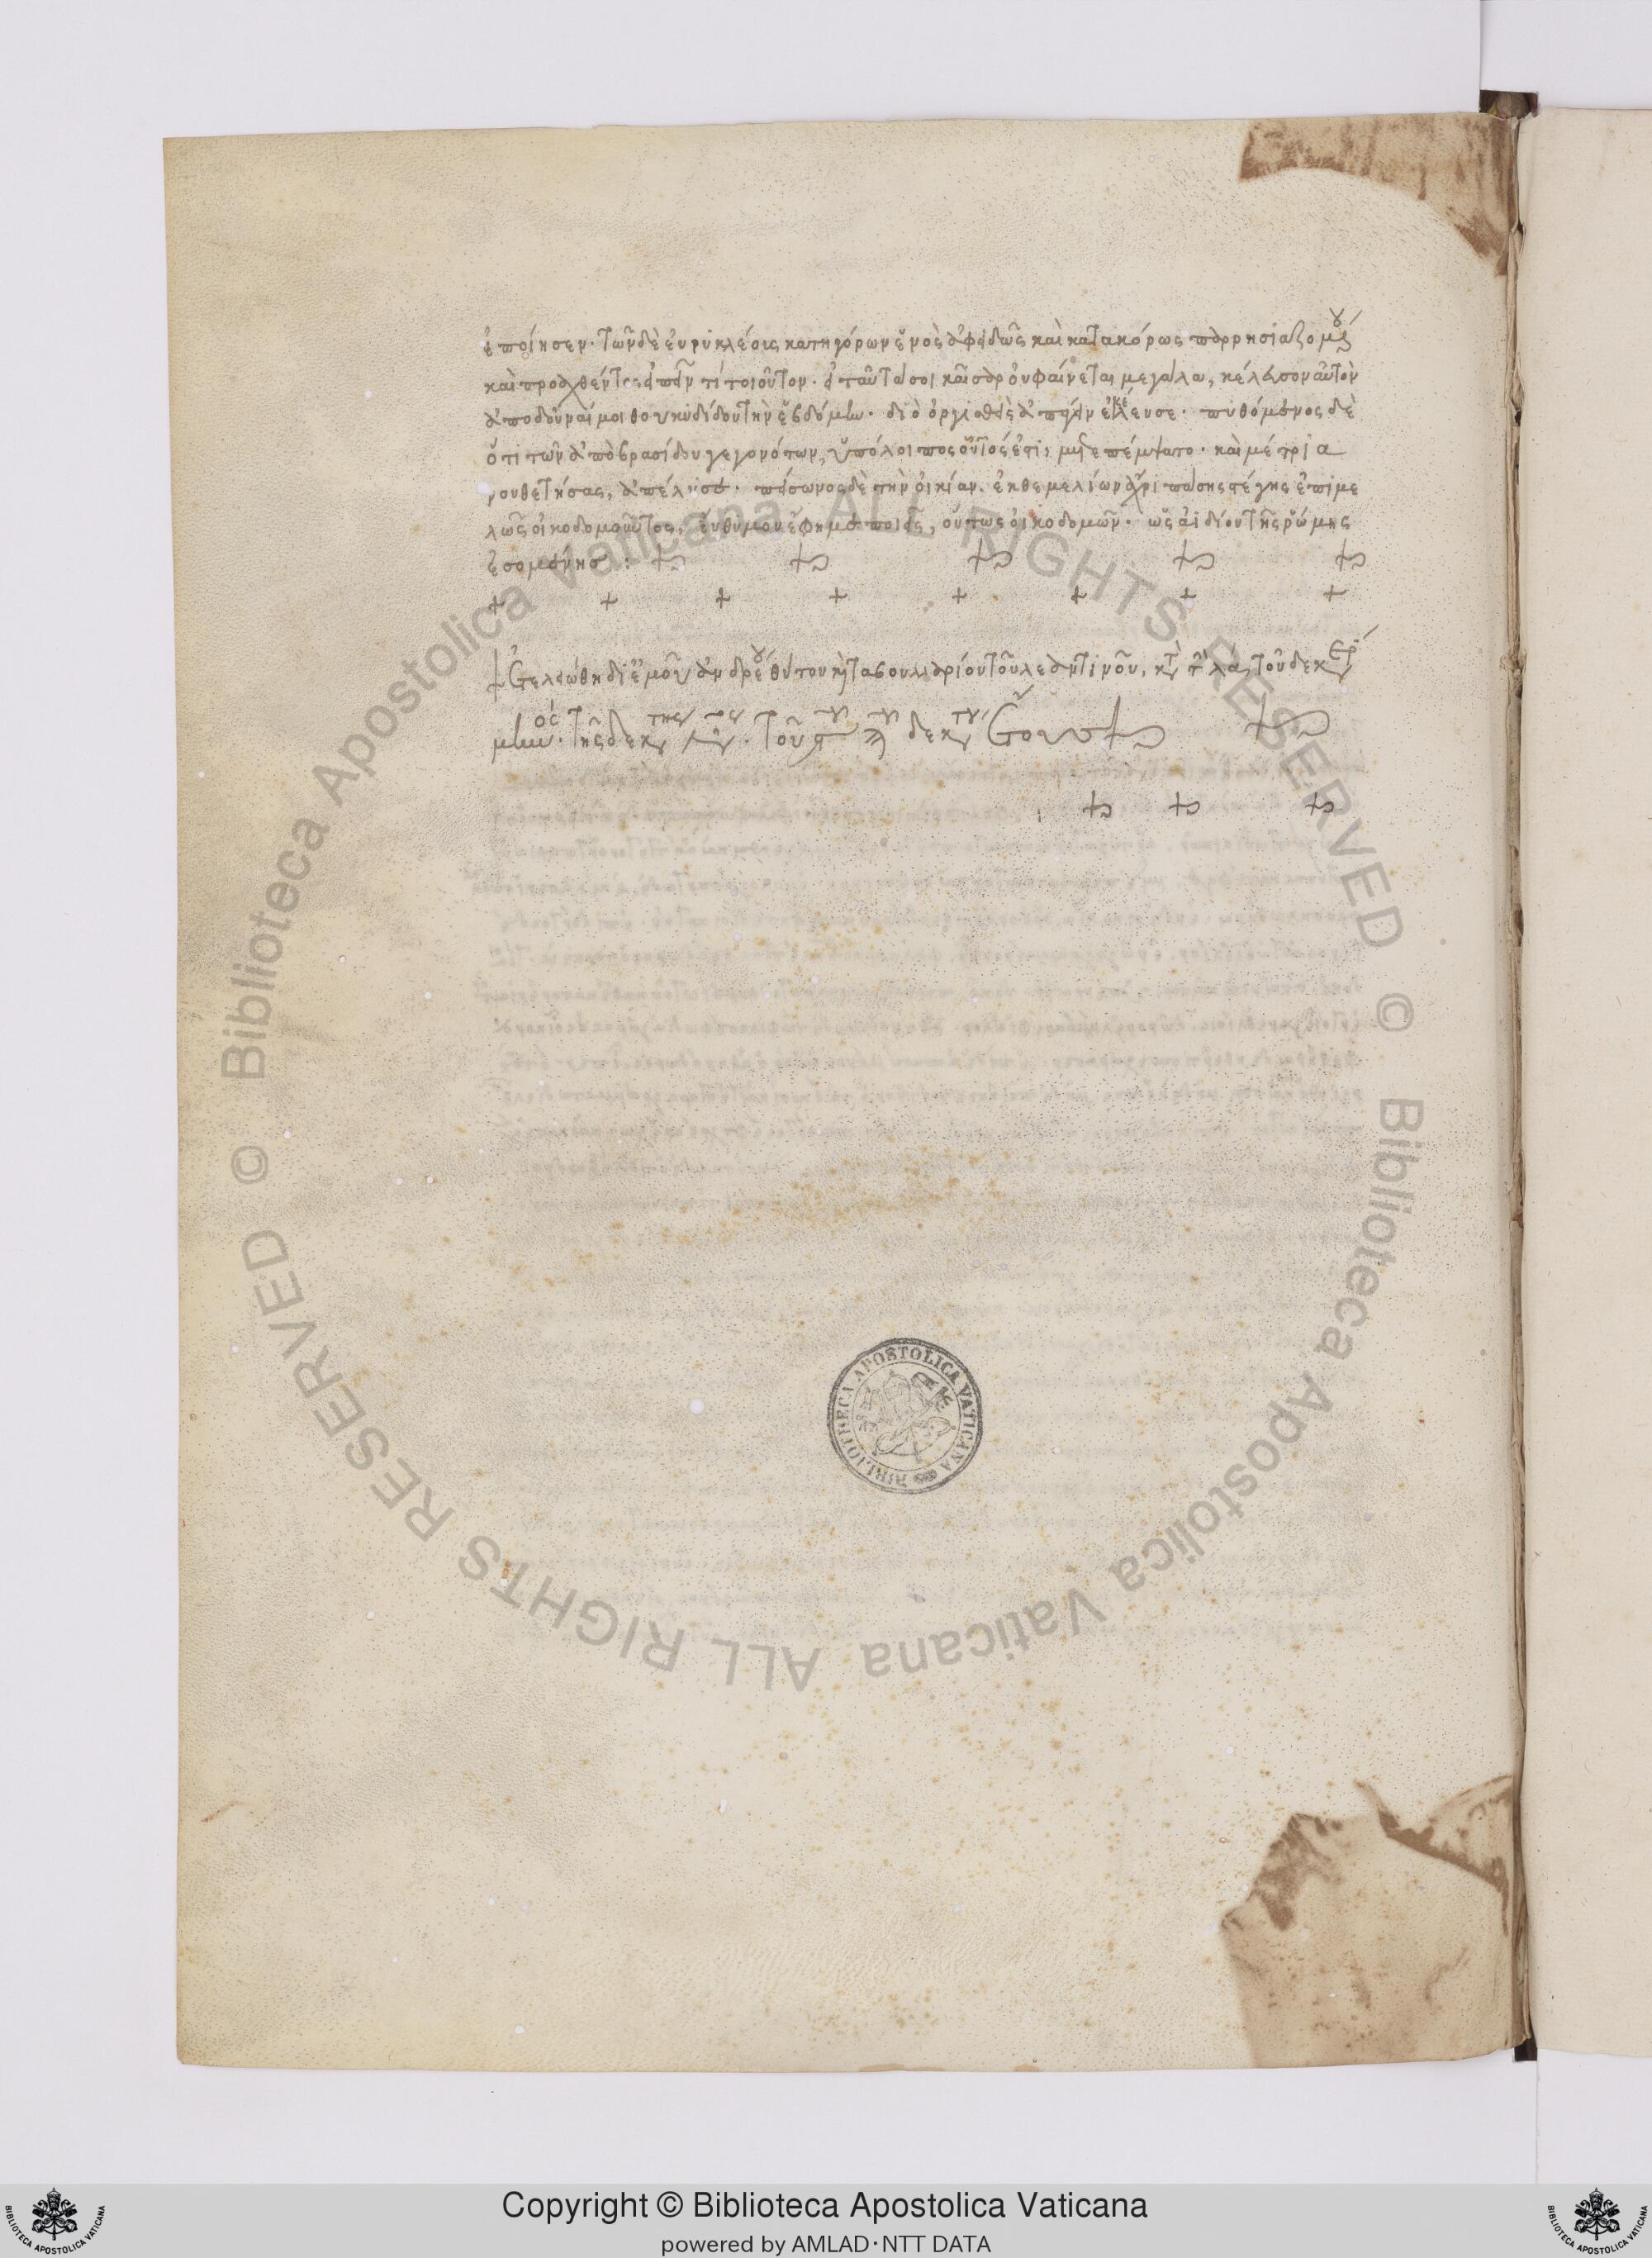 ἐποίησεν· τῶν δὲ εὐρυκλέους κατηγόρων ἑνὸς ἀφειδῶς καὶ κατακόρως παρρησιαζομένου
καὶ προαχθέντος εἰπεῖν τί τοιοῦτον· εἰ ταῦτά σοι καῖσαρ οὐ φαίνεται μεγάλα, κέλευσον αὐτὸν
ἀποδοῦναί μοι θουκυδίδου τὴν ἑβδόμην· διὸ ὀργισθεὶς ἀπάγειν ἐκέλευσε· πυθόμενος δὲ
ὅτι τῶν ἀπὸ βρασίδου γεγονότων, ὑπόλοιπος οὗτός ἐστι, μετεπέμψατο· καὶ μέτρια
νουθετήσας, ἀπέλυσε· πείσωνος δὲ τὴν οἰκίαν ἐκ θεμελίων ἄχρι πάσης στέγης ἐπιμε
λῶς οἰκοδομοῦντος, εὔθυμον ἔφη με ποιεῖς, οὕτως οἰκοδομῶν· ὡς ἀϊδίου τῆς ῥώμης
ἐσομένης :
+ + + + + + + +
Ἐτελειώθη δι' ἐμοῦ ἀνδρέου θύτου νοταρίου τοῦ λεαντινοῦ, τοῦ δεκ
μην τῆς δεκ τοῦ δεκ
BIBLIOTHECA APOSTOLICA VATICANA
© Biblioteca Apostolica Vaticana ALL RIGHTS RESERVED
© Biblioteca Apostolica Vaticana ALL RIGHTS RESERVED
Copyright © Biblioteca Apostolica Vaticana
powered by AMLAD·NTT DATA
BIBLIOTECA APOSTOLICA VATICANA
BIBLIOTECA APOSTOLICA VATICANA